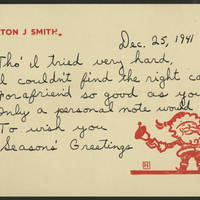 TON J SMITH.
Dec. 25, 1941
Tho' I tried very hard,
I couldn't find the right ca
For a friend so good as you
Only a personal note would
To wish you
Seasons' Greetings